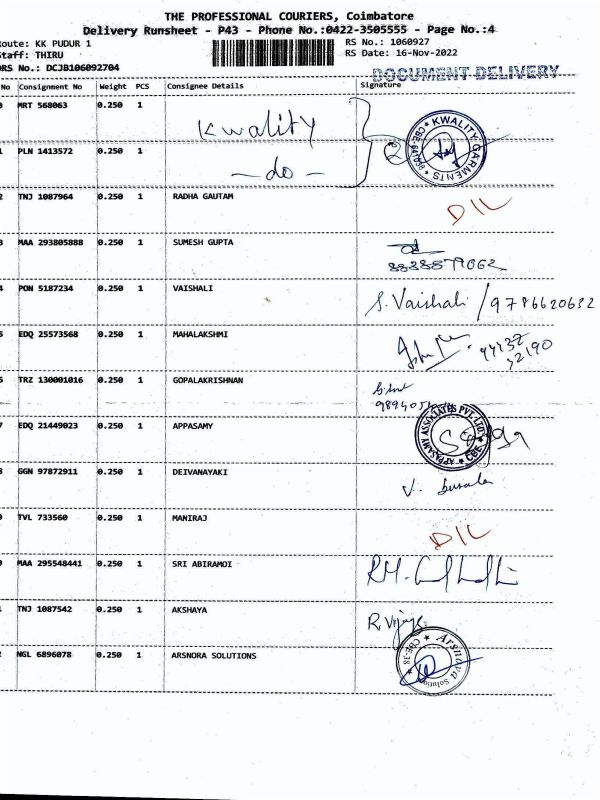 THE PROFESSIONAL COURIERS, Coimbatore
Delivery Runsheet - P43 - Phone No.:0422-3505555 - Page No.:4
Route: KK PUDUR 1
RS No.: 1060927
Staff: THIRU
RS Date: 16-Nov-2022
DRS No.: DCJB106092704
DOCUMENT DELIVERY
No Consignment No Weight PCS Consignee Details Signature
MRT 568063 0.250 1 Kwality
PLN 1413572 0.250 1 - do - 2 KWALITY GARMENTS
TNJ 1087964 0.250 1 RADHA GAUTAM D/L
MAA 293805888 0.250 1 SUMESH GUPTA
PON 5187234 0.250 1 VAISHALI S. Vaishali / 9786620632
EDQ 25573568 0.250 1 MAHALAKSHMI 94437 32190
TRZ 130001016 0.250 1 GOPALAKRISHNAN
EDQ 21449023 0.250 1 APPASAMY APPASAMY ASSOCIATES PVT. LTD. CBE
GGN 97872911 0.250 1 DEIVANAYAKI
TVL 733560 0.250 1 MANIRAJ D/L
MAA 295548441 0.250 1 SRI ABIRAMOI
TNJ 1087542 0.250 1 AKSHAYA R. Vijay
NGL 6896078 0.250 1 ARSNORA SOLUTIONS CBE-38